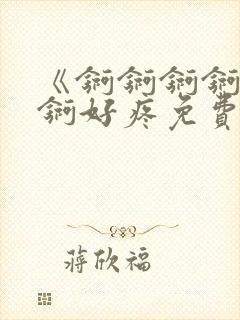 《锕锕锕锕
锕好疼免費
蔣欣福